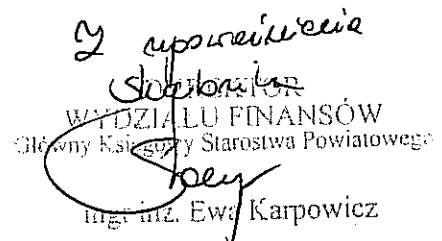 Z upoważnienia
Skarbnik
DYREKTOR
WYDZIAŁU FINANSÓW
Główny Księgowy Starostwa Powiatowego
mgr inż. Ewa Karpowicz